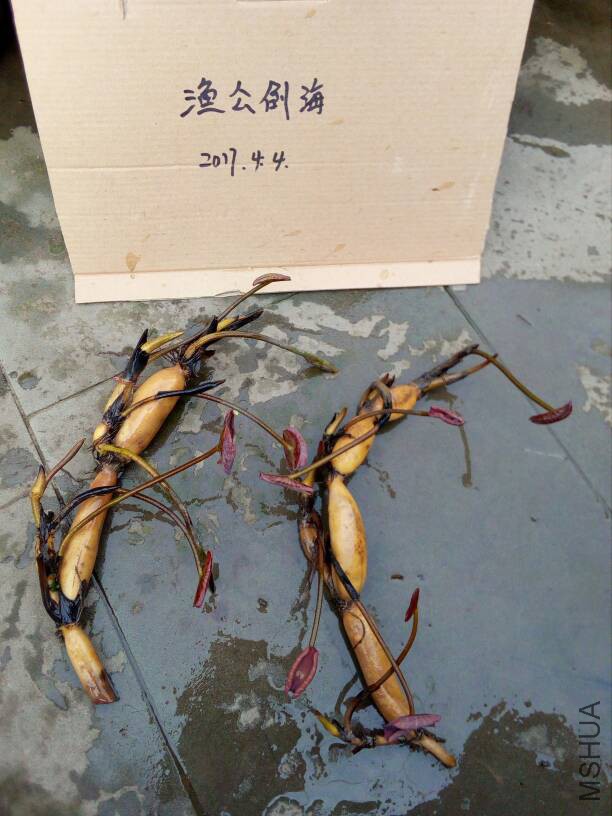 渔公倒海
2017.4.4.
MSHUA